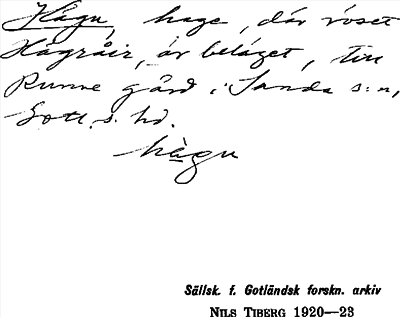 Hågu, hage, där röset
Hågråir, är beläget, till
Runne gård i Sanda s:n,
Gotl. s. hd.
hågu
Sällsk. f. Gotländsk forskn. arkiv
NILS TIBERG 1920—23